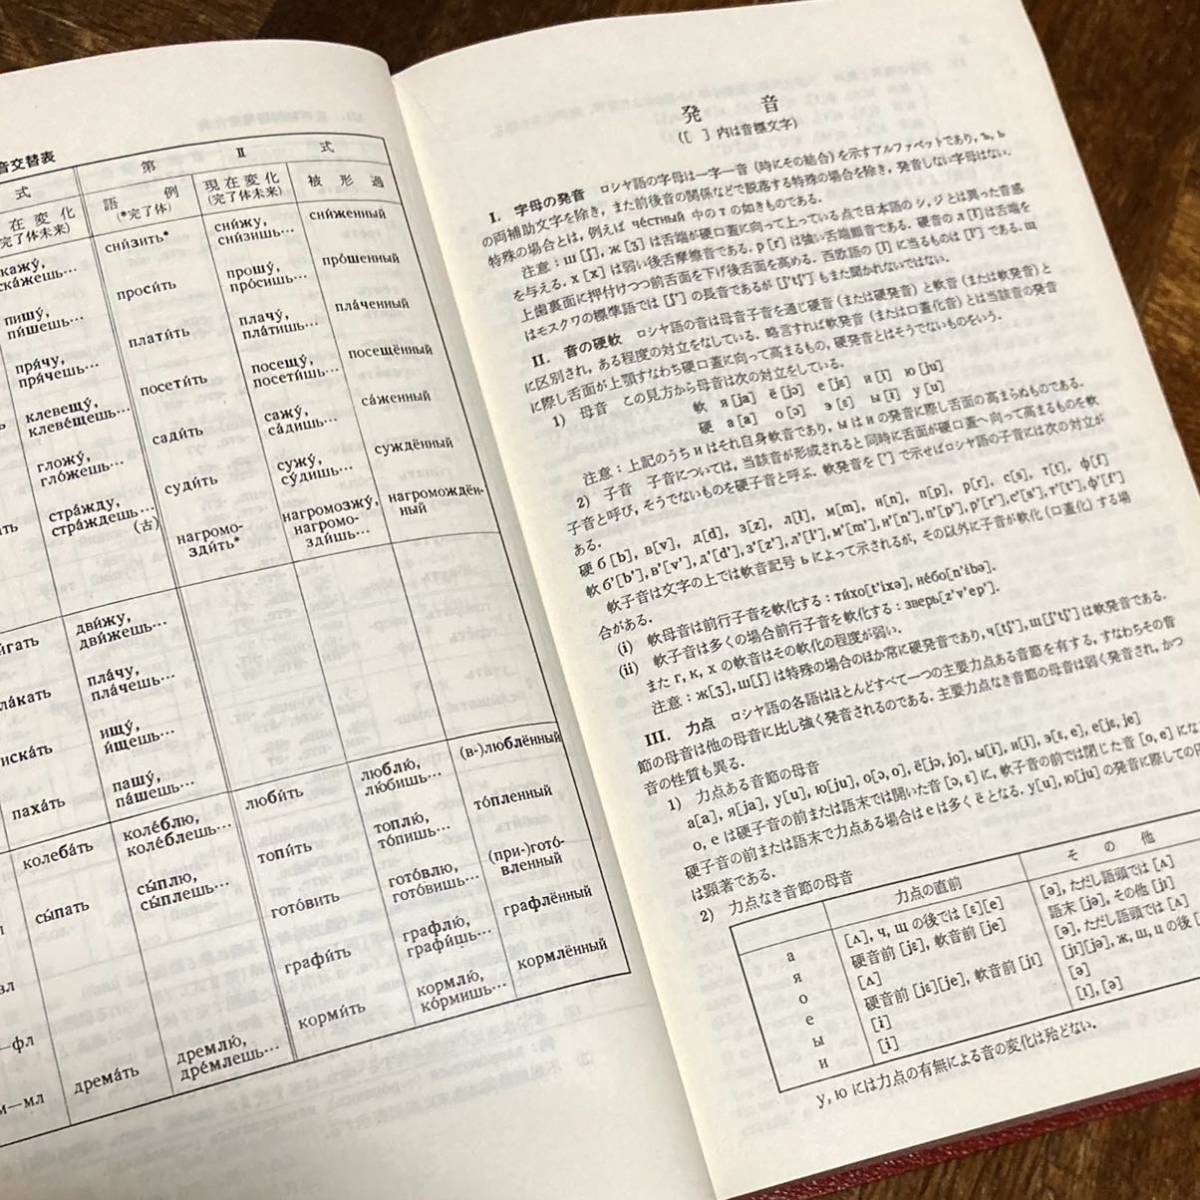 音交替表
式
在変化
完了体未来)
第 II 式
語例
(*完了体)
現在変化
(完了体未来)
被形過
кажу́,
ска́жешь…
сни́зить*
сни́жу,
сни́зишь…
сни́женный
пишу́,
пи́шешь…
проси́ть
прошу́,
про́сишь…
про́шенный
пря́чу,
пря́чешь…
плати́ть
плачу́,
пла́тишь…
пла́ченный
клевещу́,
клеве́щешь…
посети́ть
посещу́,
посети́шь…
посещённый
гложу́,
гло́жешь…
сади́ть
сажу́,
са́дишь…
са́женный
стра́жду,
стра́ждешь…
(古)
суди́ть
сужу́,
су́дишь…
суждённый
нагромо-
зди́ть*
нагромозжу́,
нагромо-
зди́шь…
нагромождён-
ный
дви́жу,
дви́жешь…
пла́чу,
пла́чешь…
иска́ть
ищу́,
и́щешь…
паха́ть
пашу́,
па́шешь…
колеба́ть
коле́блю,
коле́блешь…
люби́ть
люблю́,
лю́бишь…
(в-)люблённый
сы́пать
сы́плю,
сы́плешь…
топи́ть
топлю́,
то́пишь…
то́пленный
гото́вить
гото́влю,
гото́вишь…
(при-)гото́-
вленный
—фл
графи́ть
графлю́,
графи́шь…
графлённый
м—мл
дрема́ть
дремлю́,
дре́млешь…
корми́ть
кормлю́,
ко́рмишь…
кормлённый
発音
([ ]内は音標文字)
I. 字母の発音 ロシヤ語の字母は一字一音(時にその結合)を示すアルファベットであり, ъ, ь
の両補助文字を除き, また前後音の関係などで脱落する特殊の場合を除き, 発音しない字母はない.
特殊の場合とは, 例えば че́стный 中の т の如きものである.
注意: ш [ʃ], ж [ʒ] は舌端が硬口蓋に向って上っている点で日本語のシ, ジとは異った音感
を与える. х [x] は弱い後舌摩擦音である. р [r] は強い舌端顫音である. 硬音の л [l] は舌端を
上歯裏面に押付けつつ前舌面を下げ後舌面を高める. 西欧語の [l] に当るものは [l'] である. щ
はモスクワの標準語では [ʃ'] の長音であるが [ʃ'tʃ'] もまた聞かれないではない.
II. 音の硬軟 ロシヤ語の音は母音子音を通じ硬音(または硬発音)と軟音(または軟発音)と
に区別され, ある程度の対立をなしている. 略言すれば軟発音(または口蓋化音)とは当該音の発音
に際し舌面が上顎すなわち硬口蓋に向って高まるもの, 硬発音とはそうでないものをいう.
1) 母音 この見方から母音は次の対立をしている.
軟 я [ja] ё [jɔ] е [jɛ] и [i] ю [ju]
硬 а [a] о [ɔ] э [ɛ] ы [ɨ] у [u]
注意: 上記のうち и はそれ自身軟音であり, ы は и の発音に際し舌面の高まらぬものである.
2) 子音 子音については, 当該音が形成されると同時に舌面が硬口蓋へ向って高まるものを軟
子音と呼び, そうでないものを硬子音と呼ぶ. 軟発音を ['] で示せばロシヤ語の子音には次の対立が
ある.
硬 б [b], в[v], д[d], з[z], л[l], м[m], н[n], п[p], р[r], с[s], т[t], ф[f]
軟 б'[b'], в'[v'], д'[d'], з'[z'], л'[l'], м'[m'], н'[n'], п'[p'], р'[r'], с'[s'], т'[t'], ф'[f']
軟子音は文字の上では軟音記号 ь によって示されるが, その以外に子音が軟化(口蓋化)する場
合がある.
(i) 軟母音は前行子音を軟化する: ти́хо[t'ixə], не́бо[n'ɛbə].
(ii) 軟子音は多くの場合前行子音を軟化する: зверь[z'v'er'].
また г, к, х の軟音はその軟化の程度が弱い.
注意: ж[ʒ], ш[ʃ] は特殊の場合のほか常に硬発音であり, ч[tʃ'], щ[ʃ'tʃ'] は軟発音である.
III. 力点 ロシヤ語の各語はほとんどすべて一つの主要力点ある音節を有する. すなわちその音
節の母音は他の母音に比し強く発音されるのである. 主要力点なき音節の母音は弱く発音され, かつ
音の性質も異る.
1) 力点ある音節の母音
а[a], я[ja], у[u], ю[ju], о[ɔ, o], ё[jɔ, jo], ы[ɨ], и[i], э[ɛ, e], е[jɛ, je]
о, е は硬子音の前または語末では開いた音 [ɔ, ɛ] に, 軟子音の前では閉じた音 [o, e] にな
硬子音の前または語末で力点ある場合は е は多く ё となる. у[u], ю[ju] の発音に際しての
は顕著である.
2) 力点なき音節の母音
力点の直前 その他
а [ʌ], ч, щ の後では [ɛ][e] [ə], ただし語頭では [ʌ]
я 硬音前 [jɛ], 軟音前 [je] 語末 [jə], その他 [jɪ]
о [ʌ] [ə], ただし語頭では [ʌ]
е 硬音前 [jɛ][je], 軟音前 [jɪ] [jɪ][jə], ж, ш, ц の後
ы [ɨ] [ə]
и [i] [ɪ], [ə]
у, ю には力点の有無による音の変化は殆どない.